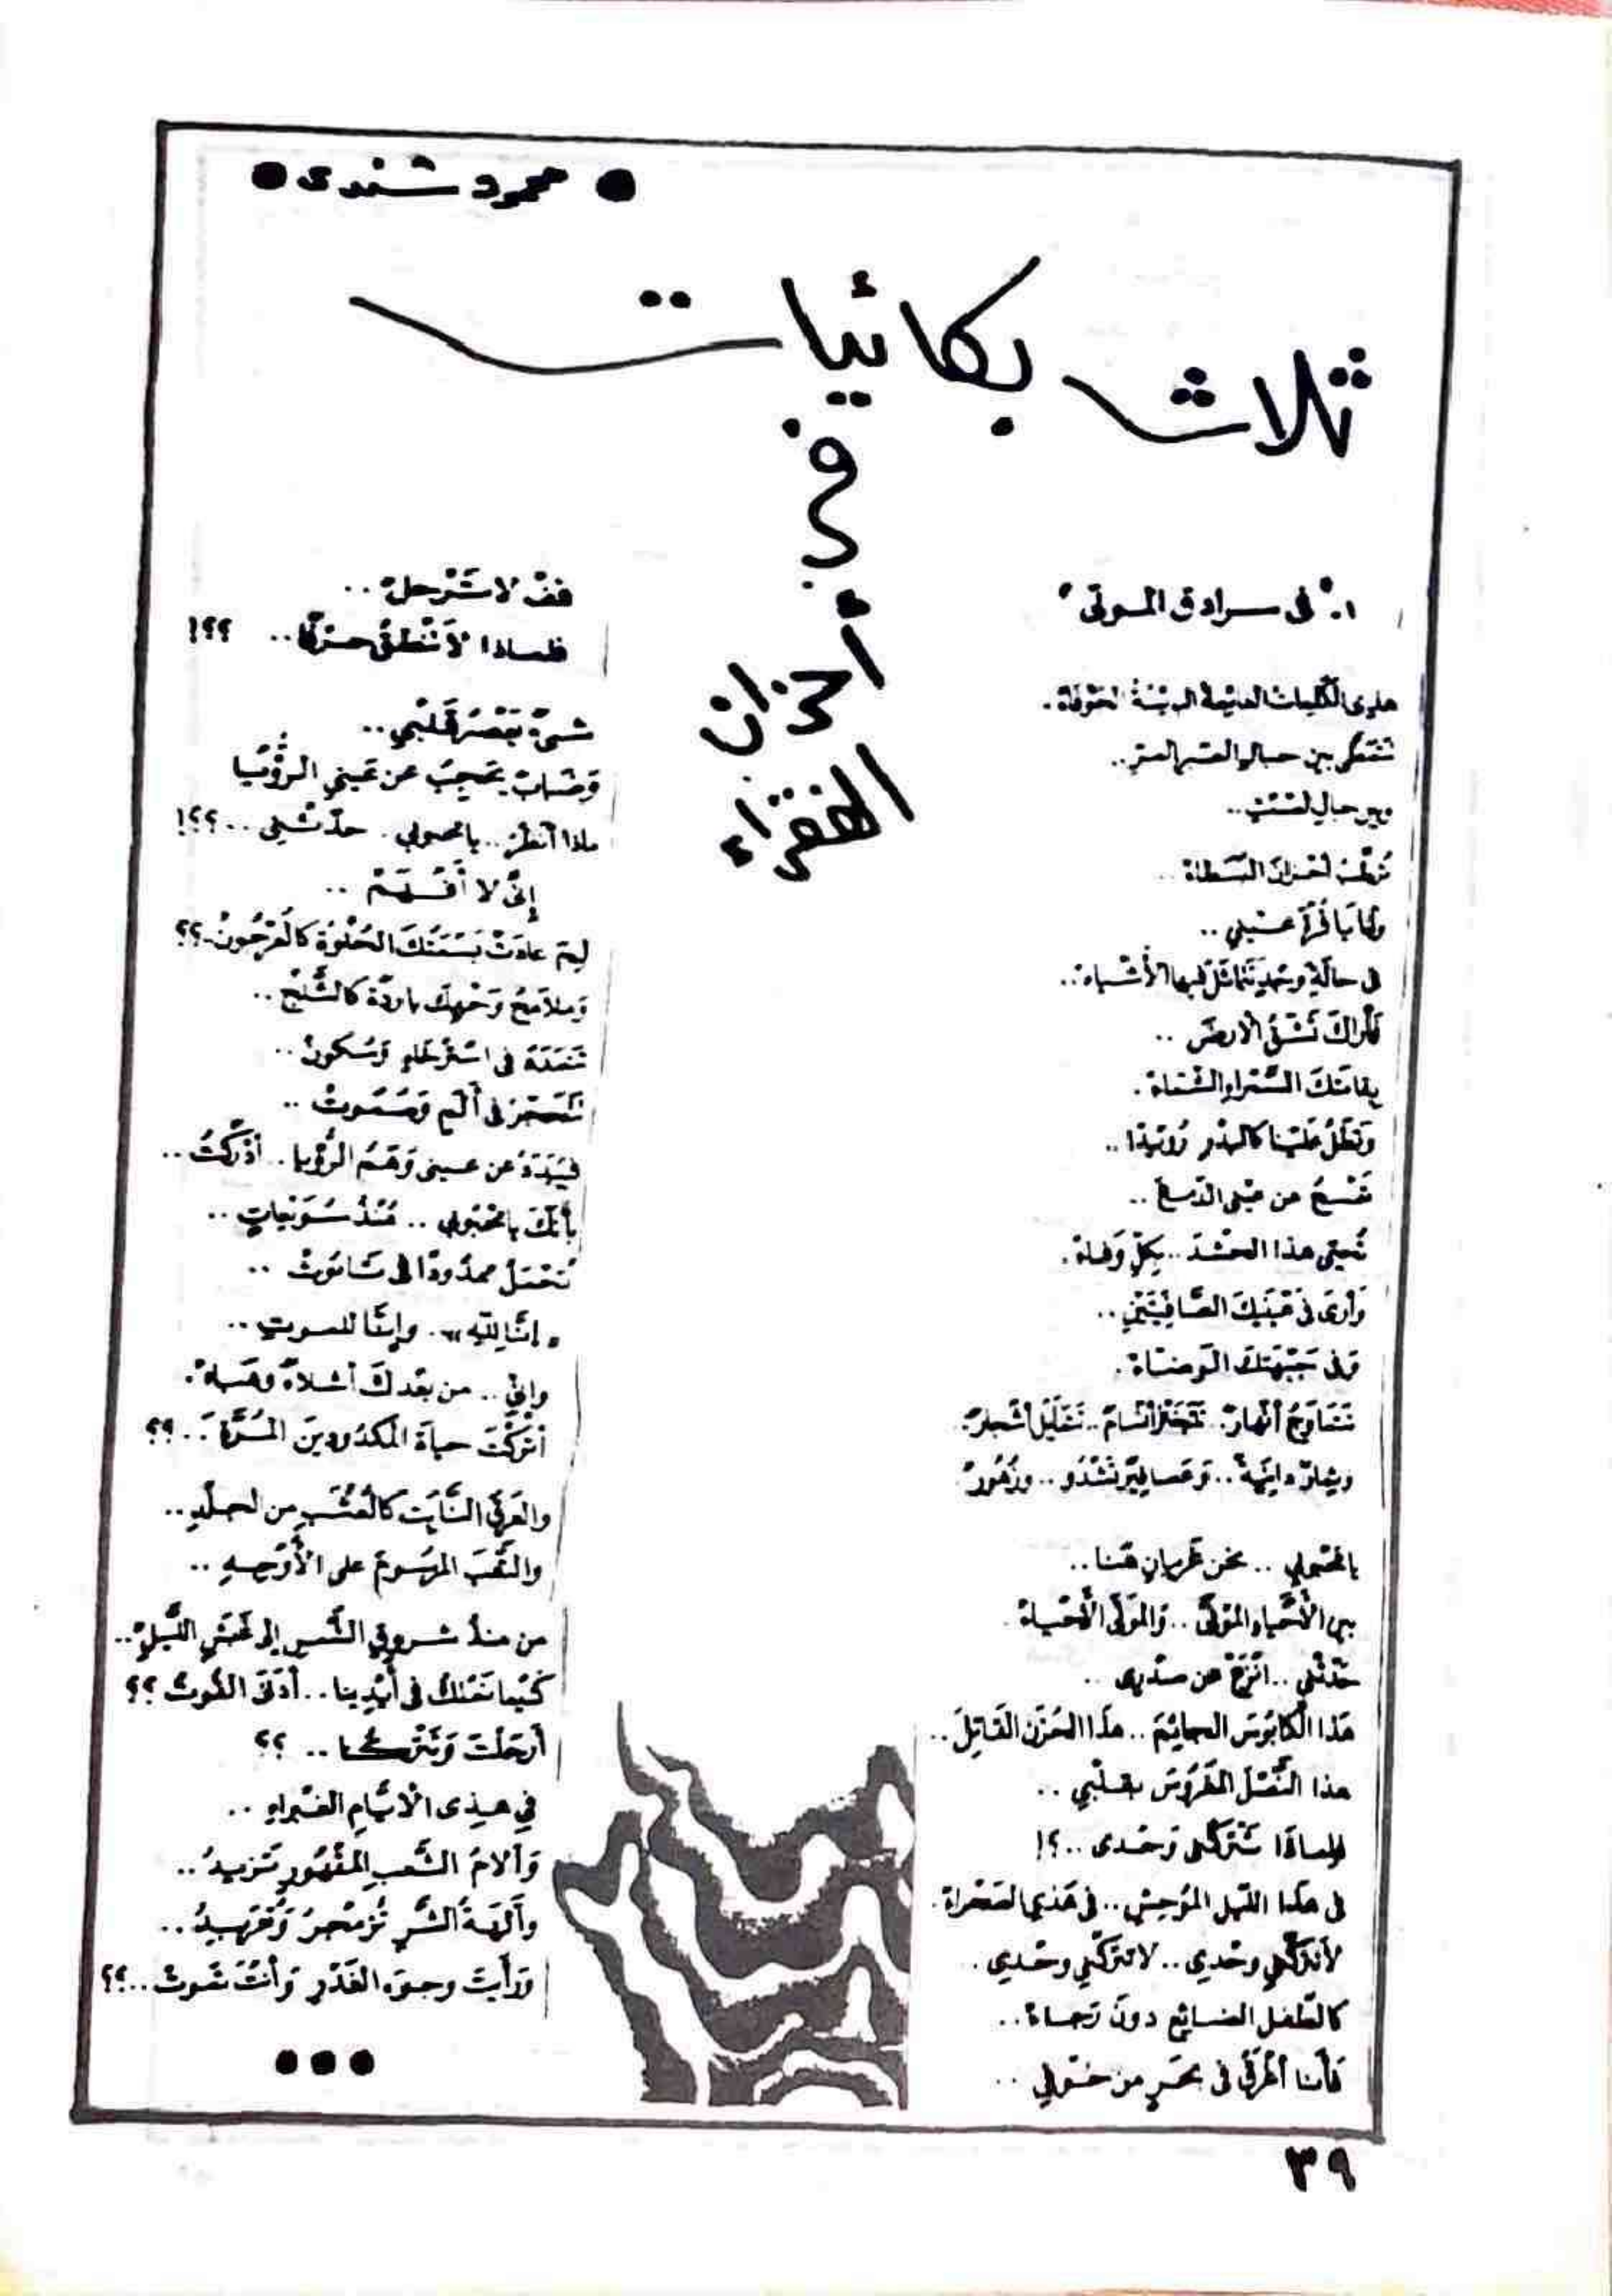 ● محمود شندى ●
ثلاث بكائيات
فى
أحزان
الفقراء
١- " فى سرادق الموتى "
هذى الكلمات
بين حبال
وبين حبال الصمت..
أحزان البسطاءْ ..
وأنا يا قرة عينيي ..
فى حالةِ وجدٍ تتماثل فيها الأشياءْ..
فأراكَ تشقُّ الأرضَ ..
بقامتكَ السَّمْراءِ الشَّمَّاءْ.
وتطلُّ علينا كالبدرِ رُوَيْدًا ..
تمْسحُ عن عينى الدّمعَ ..
تُحيّى هذا الحشْدَ .. بكلِّ وَفاءْ.
وأرى فى عَيْنَيكَ الصَّافِيَتَيْنِ ..
وفى جَبْهَتِكَ الوضَّاءْ.
أنهارٌ.. أنسامٌ.. أشجارٌ.
وثمارٌ دانيةٌ.. وعصافيرٌ تشْدُو .. وزُهُورْ
يا محبوبي .. نحن غريبانِ هُنا ..
بين الأحْياءِ الموْتَى .. والموْتَى الأحْياءْ.
حدّثْنى .. انْزعْ عن صدْرى ..
هَذا الكابُوسَ الجاثِمَ .. هذا الحُزْنَ القَاتِلَ ..
هذا النَّصْلَ المغْرُوسَ بقلْبي ..
فلماذَا تتْركُنى وحْدى ..؟!
فى هذا الليل المُوحِشِ .. فى هَذى الصَّحْراءْ.
لا تتركْنِي وحْدي .. لا تتركْنِي وحْدي .
كالطّفل الضائِع دونَ رَجاءْ..
فأنا أغْرقُ فى بحْرٍ من خَوْفي ..
قفْ لا ترْحلْ ..
فلماذا لا تنْطقُ حرْفًا.. ؟؟!
شىءٌ يَعْصرُ قَلْبي..
وضبابٌ يحجبُ عن عَيني الرُّؤيا
ماذا أنظرُ.. يا محبوبي. حدّثْني ..؟؟!
إنِّى لا أفْهَمْ ..
لِمَ عادَتْ بَسْمَتُكَ الحُلْوَةُ كالعُرْجُونْ..؟؟
وملامحُ وَجْهِكَ باردَةً كالثَّلْجِ ..
فى اسْترْخاءٍ وسُكونْ ..
فى ألَمٍ وصُمُوتْ ..
عن عينى وَهَمُ الرُّؤيا .. أدْركْتُ ..
بأنّكَ يا محْبُوبي .. مُنْذُ سُوَيْعاتٍ ..
تُحْمَلُ ممدُودًا فى تَابُوتْ ..
« إنّا للّهِ ».. وإنّا للموتِ ..
وإنّي .. من بعْدِكَ أشلاءٌ وهَباءْ.
أتركْتَ حياةَ المكدُودينَ المُرَّةَ .. ؟؟
والعَرقَ النَّابتَ كالعُشْبِ من الجلْدِ ..
والتَّعَبَ المرْسُومَ على الأَوْجهِ ..
من منذُ شروقِ الشَّمسِ إلى اللَّيلِ..
كَيْما نمْلكُ فى أيْدينا .. أدْنَى القُوتْ ؟؟
أرحَلْتَ وتتْركُنا .. ؟؟
في هذِى الأيَّامِ الغبْراءِ ..
وآلامُ الشَّعبِ المقْهُورِ تَزيدُ ..
وآلهَةُ الشَّرِّ تُزمْجرُ وتُعَرْبِدُ ..
ورَأيتَ وجوهَ الغَدْرِ وأنْتَ تَموتْ ..؟؟
●●●
٣٩